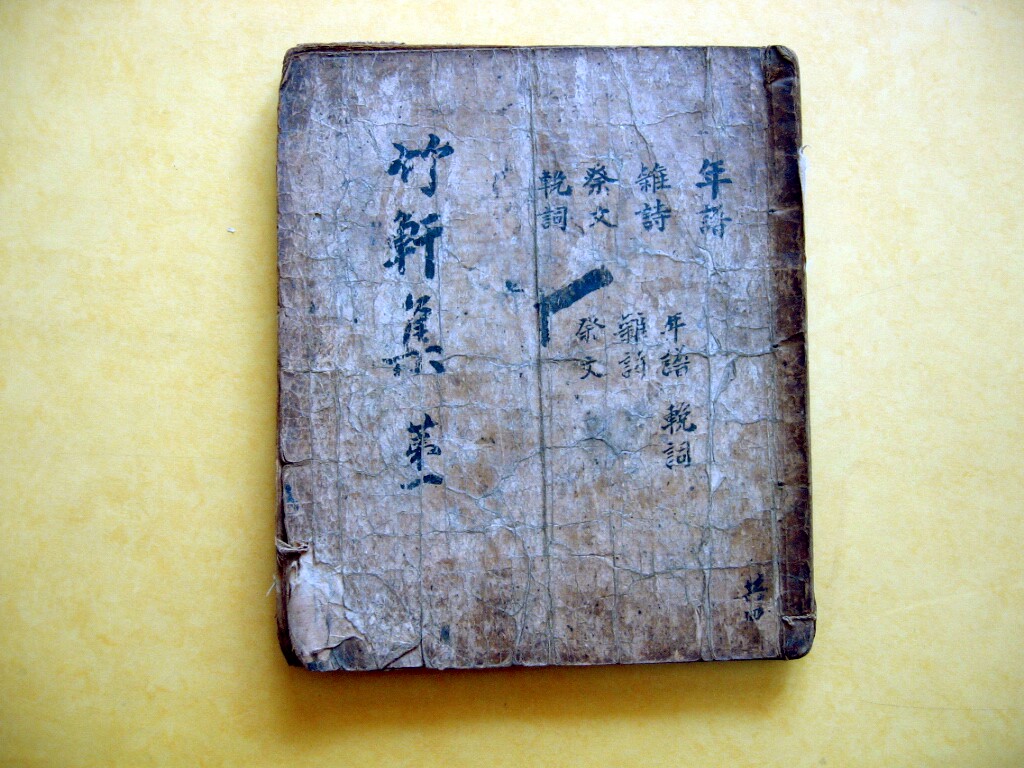 年譜
雜詩
祭文
輓詞
年譜
輓詞
雜詩
祭文
竹軒集 第一
共四